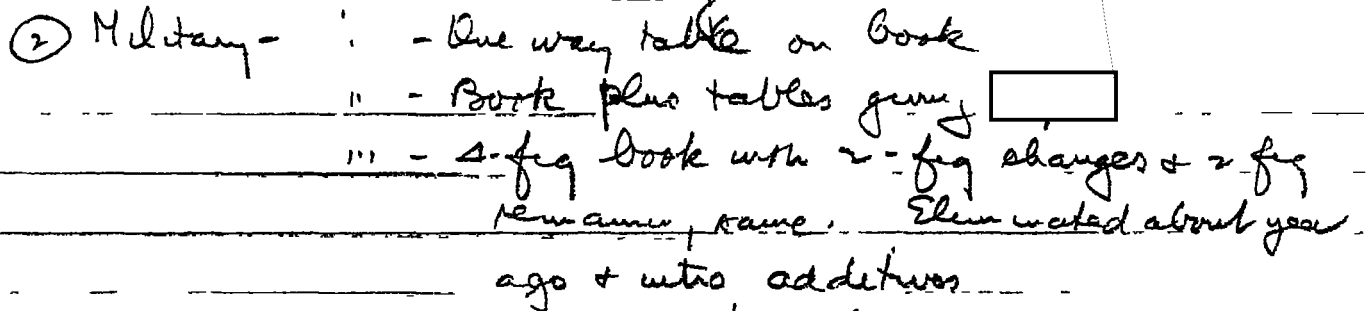 ② Military - i - One way table on book
ii - Book plus tables giving
iii - 4-fig book with 2-fig changes & 2 fig
remaining same. Eliminated about year
ago & intro additives